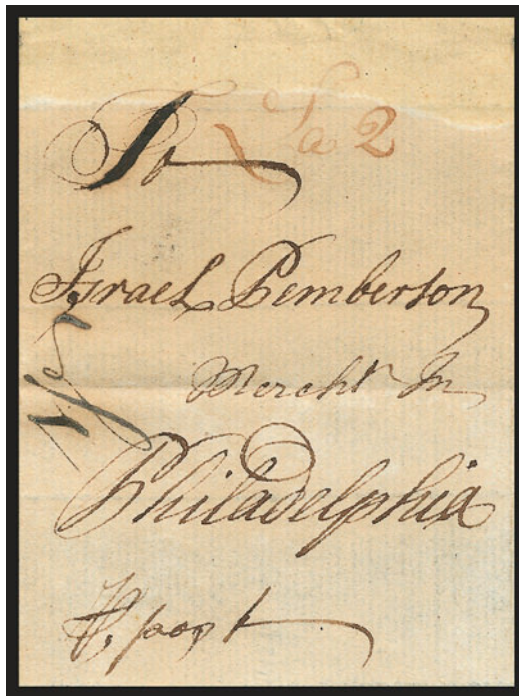 To
Sa 2
Israel Pemberton
Mercht In
Philadelphia
post